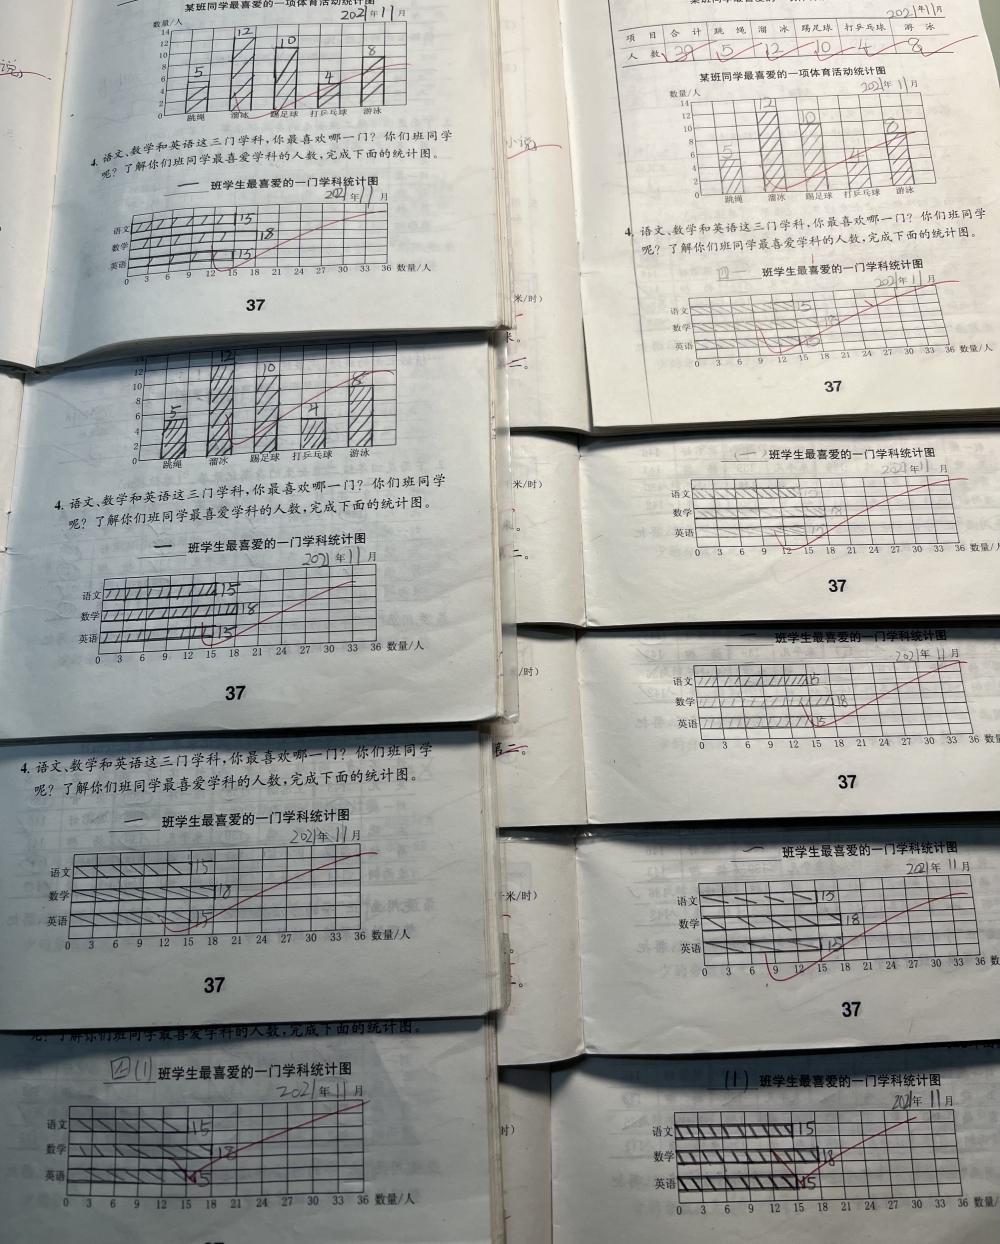 某班同学最喜爱的一项体育活动统计图
2021年11月
数量/人
14
12
10
8
6
4
2
0
5
12
10
4
8
跳绳 溜冰 踢足球 打乒乓球 游泳
4. 语文、数学和英语这三门学科,你最喜欢哪一门?你们班同学
呢?了解你们班同学最喜爱学科的人数,完成下面的统计图。
一 班学生最喜爱的一门学科统计图
2021年11月
语文 15
数学 18
英语 15
0 3 6 9 12 15 18 21 24 27 30 33 36 数量/人
37
12
10
8
6
4
2
0
5
12
10
4
8
跳绳 溜冰 踢足球 打乒乓球 游泳
4. 语文、数学和英语这三门学科,你最喜欢哪一门?你们班同学
呢?了解你们班同学最喜爱学科的人数,完成下面的统计图。
一 班学生最喜爱的一门学科统计图
2021年11月
语文 15
数学 18
英语 15
0 3 6 9 12 15 18 21 24 27 30 33 36 数量/人
37
4. 语文、数学和英语这三门学科,你最喜欢哪一门?你们班同学
呢?了解你们班同学最喜爱学科的人数,完成下面的统计图。
一 班学生最喜爱的一门学科统计图
2021年11月
语文 15
数学 18
英语 15
0 3 6 9 12 15 18 21 24 27 30 33 36 数量/人
37
呢?了解你们班同学最喜爱学科的人数,完成下面的统计图。
四(1) 班学生最喜爱的一门学科统计图
2021年11月
语文 15
数学 18
英语 15
0 3 6 9 12 15 18 21 24 27 30 33 36 数量/人
2021年11月
项目 合计 跳绳 溜冰 踢足球 打乒乓球 游泳
人数 39 5 12 10 4 8
某班同学最喜爱的一项体育活动统计图
2021年11月
数量/人
14
12
10
8
6
4
2
0
5
12
10
4
8
跳绳 溜冰 踢足球 打乒乓球 游泳
4. 语文、数学和英语这三门学科,你最喜欢哪一门?你们班同学
呢?了解你们班同学最喜爱学科的人数,完成下面的统计图。
四一 班学生最喜爱的一门学科统计图
2021年11月
语文 15
数学 18
英语 15
0 3 6 9 12 15 18 21 24 27 30 33 36 数量/人
37
米/时)
(一) 班学生最喜爱的一门学科统计图
2021年11月
语文 15
数学 18
英语 15
0 3 6 9 12 15 18 21 24 27 30 33 36 数量/
37
米/时)
一 班学生最喜爱的一门学科统计图
2021年11月
语文 15
数学 18
英语 15
0 3 6 9 12 15 18 21 24 27 30 33 36 数
37
/时)
一 班学生最喜爱的一门学科统计图
2021年11月
语文 15
数学 18
英语 15
0 3 6 9 12 15 18 21 24 27 30 33 36 数
37
米/时)
(1) 班学生最喜爱的一门学科统计图
2021年11月
语文 15
数学 18
英语 15
0 3 6 9 12 15 18 21 24 27 30 33 36 数量/
时)